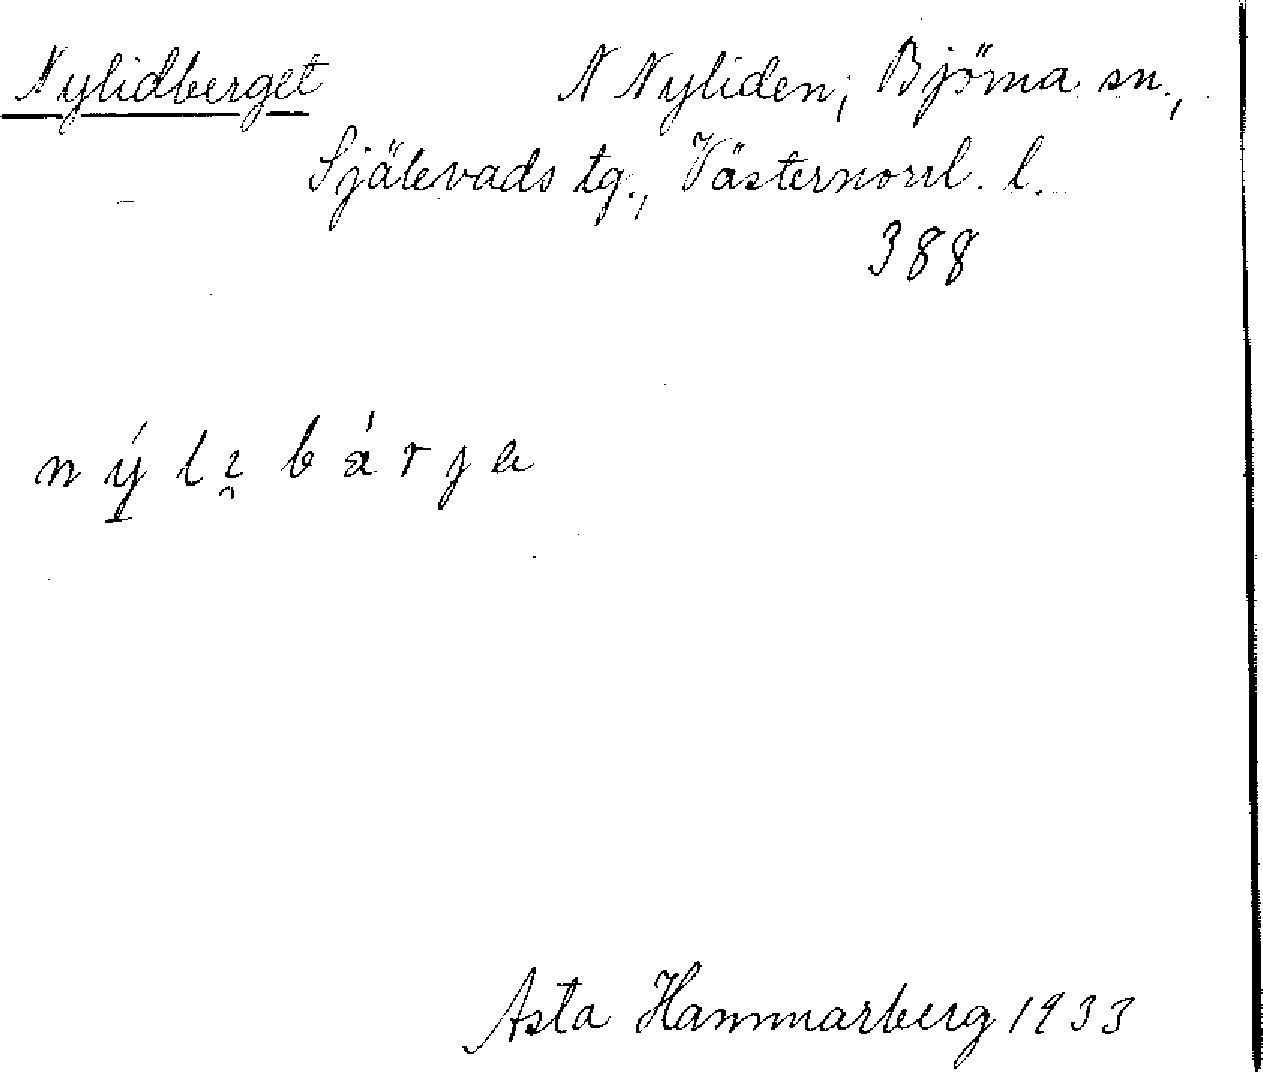 Nylidberget N Nyliden; Björna sn.,
Själevads tg., Västernorrl. l.
388
ný̱lɪ̯bárjɑ
Asta Hammarberg 1933